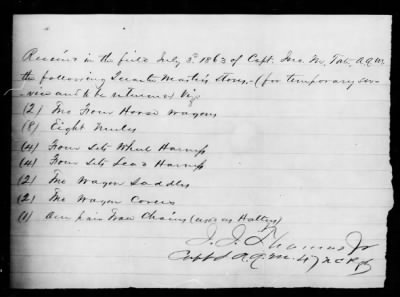 Received in the field July 3d 1863 of Capt. Jno. M. Tate, A.Q.M.
the following Quarter Master's Stores - (for temporary ser-
-vice and to be returned) Viz
(2) Two Four Horse Wagons
(8) Eight Mules
(4) Four Sets Wheel Harness
(4) Four Sets Lead Harness
(2) Two Wagon Saddles
(2) Two Wagon Covers
(1) One pair Trace Chains (used as Halters)
J. J. Thomas Jr
Capt & A.Q.M. 47 N.C.